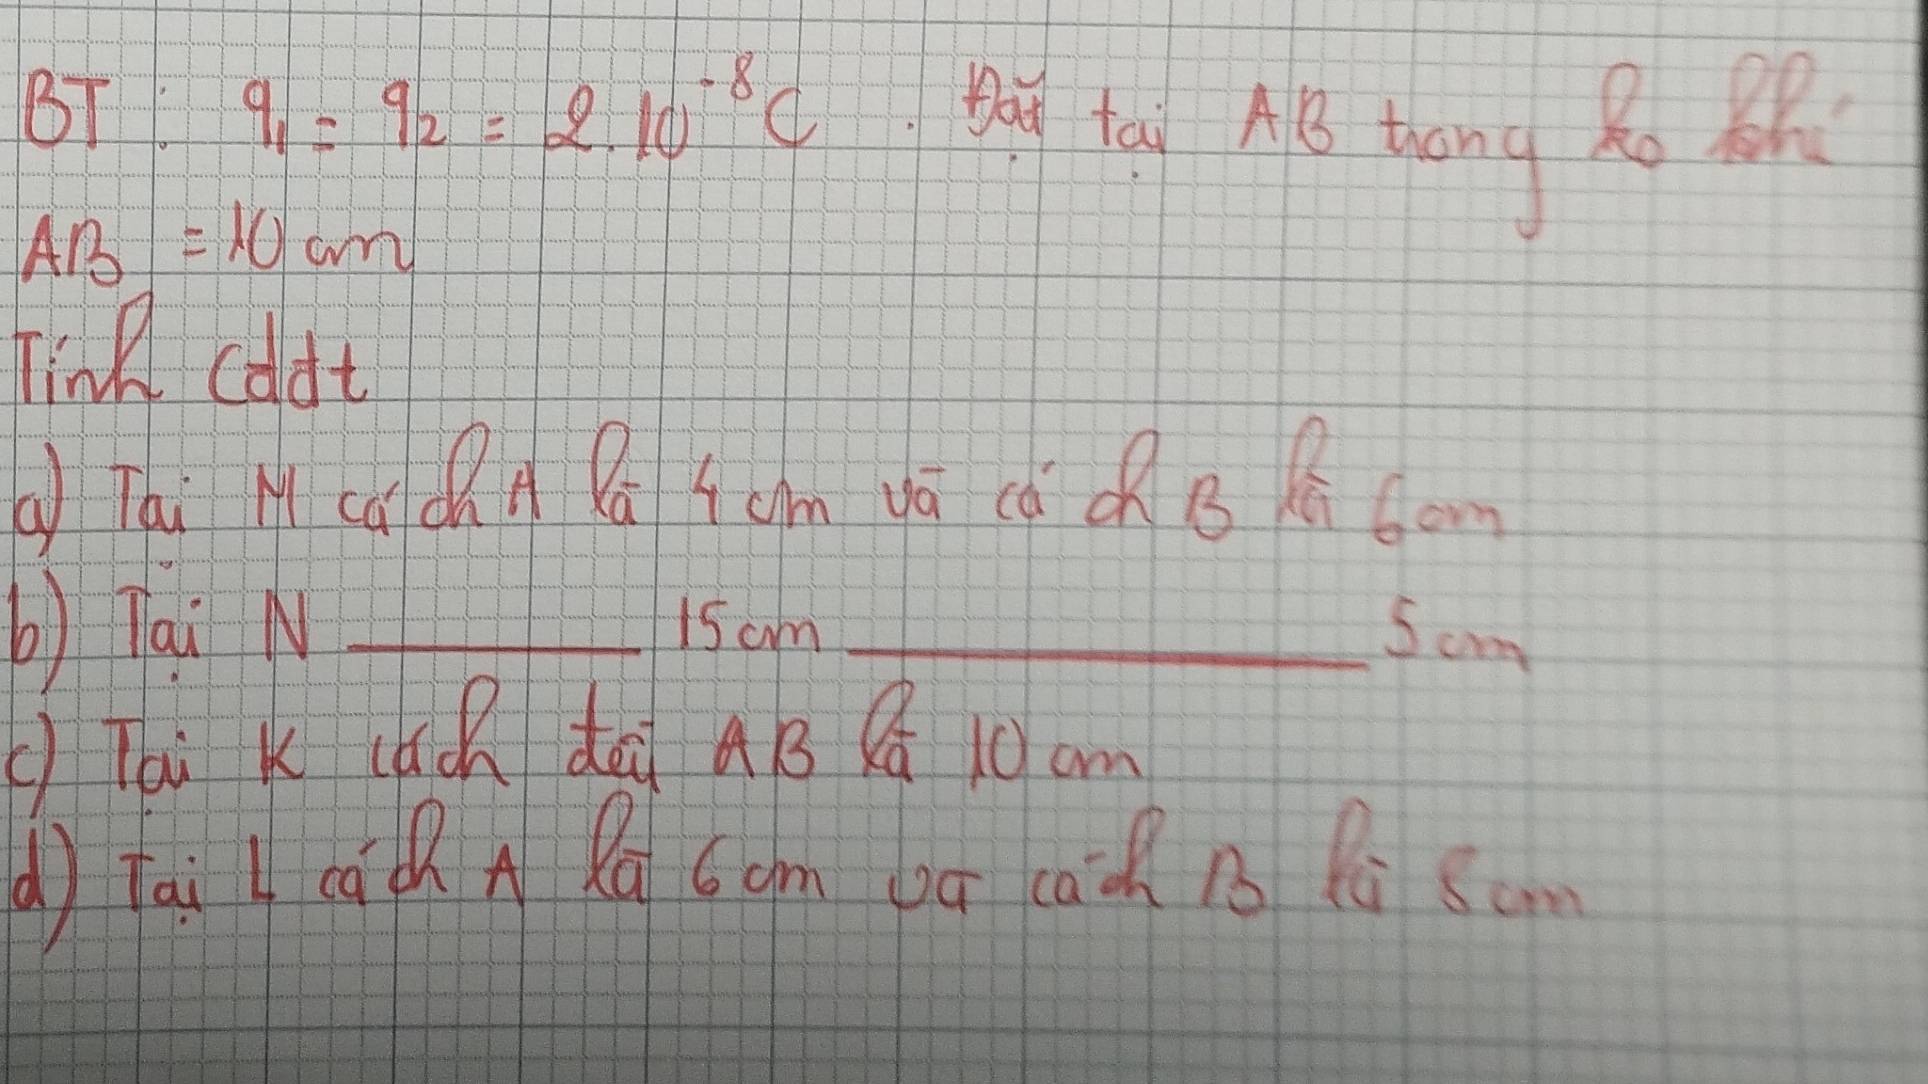 BT : q₁ = q₂ = 2.10⁻⁸C . Đặt tại AB trong ko khí
AB = 10 cm
Tính cđđt
a) Tại M cách A là 4 cm và cách B là 6cm
b) Tại N ______ 15cm ______ 5cm
c) Tại K cách đều AB là 10 cm
d) Tại L cách A là 6 cm và cách B là 8cm